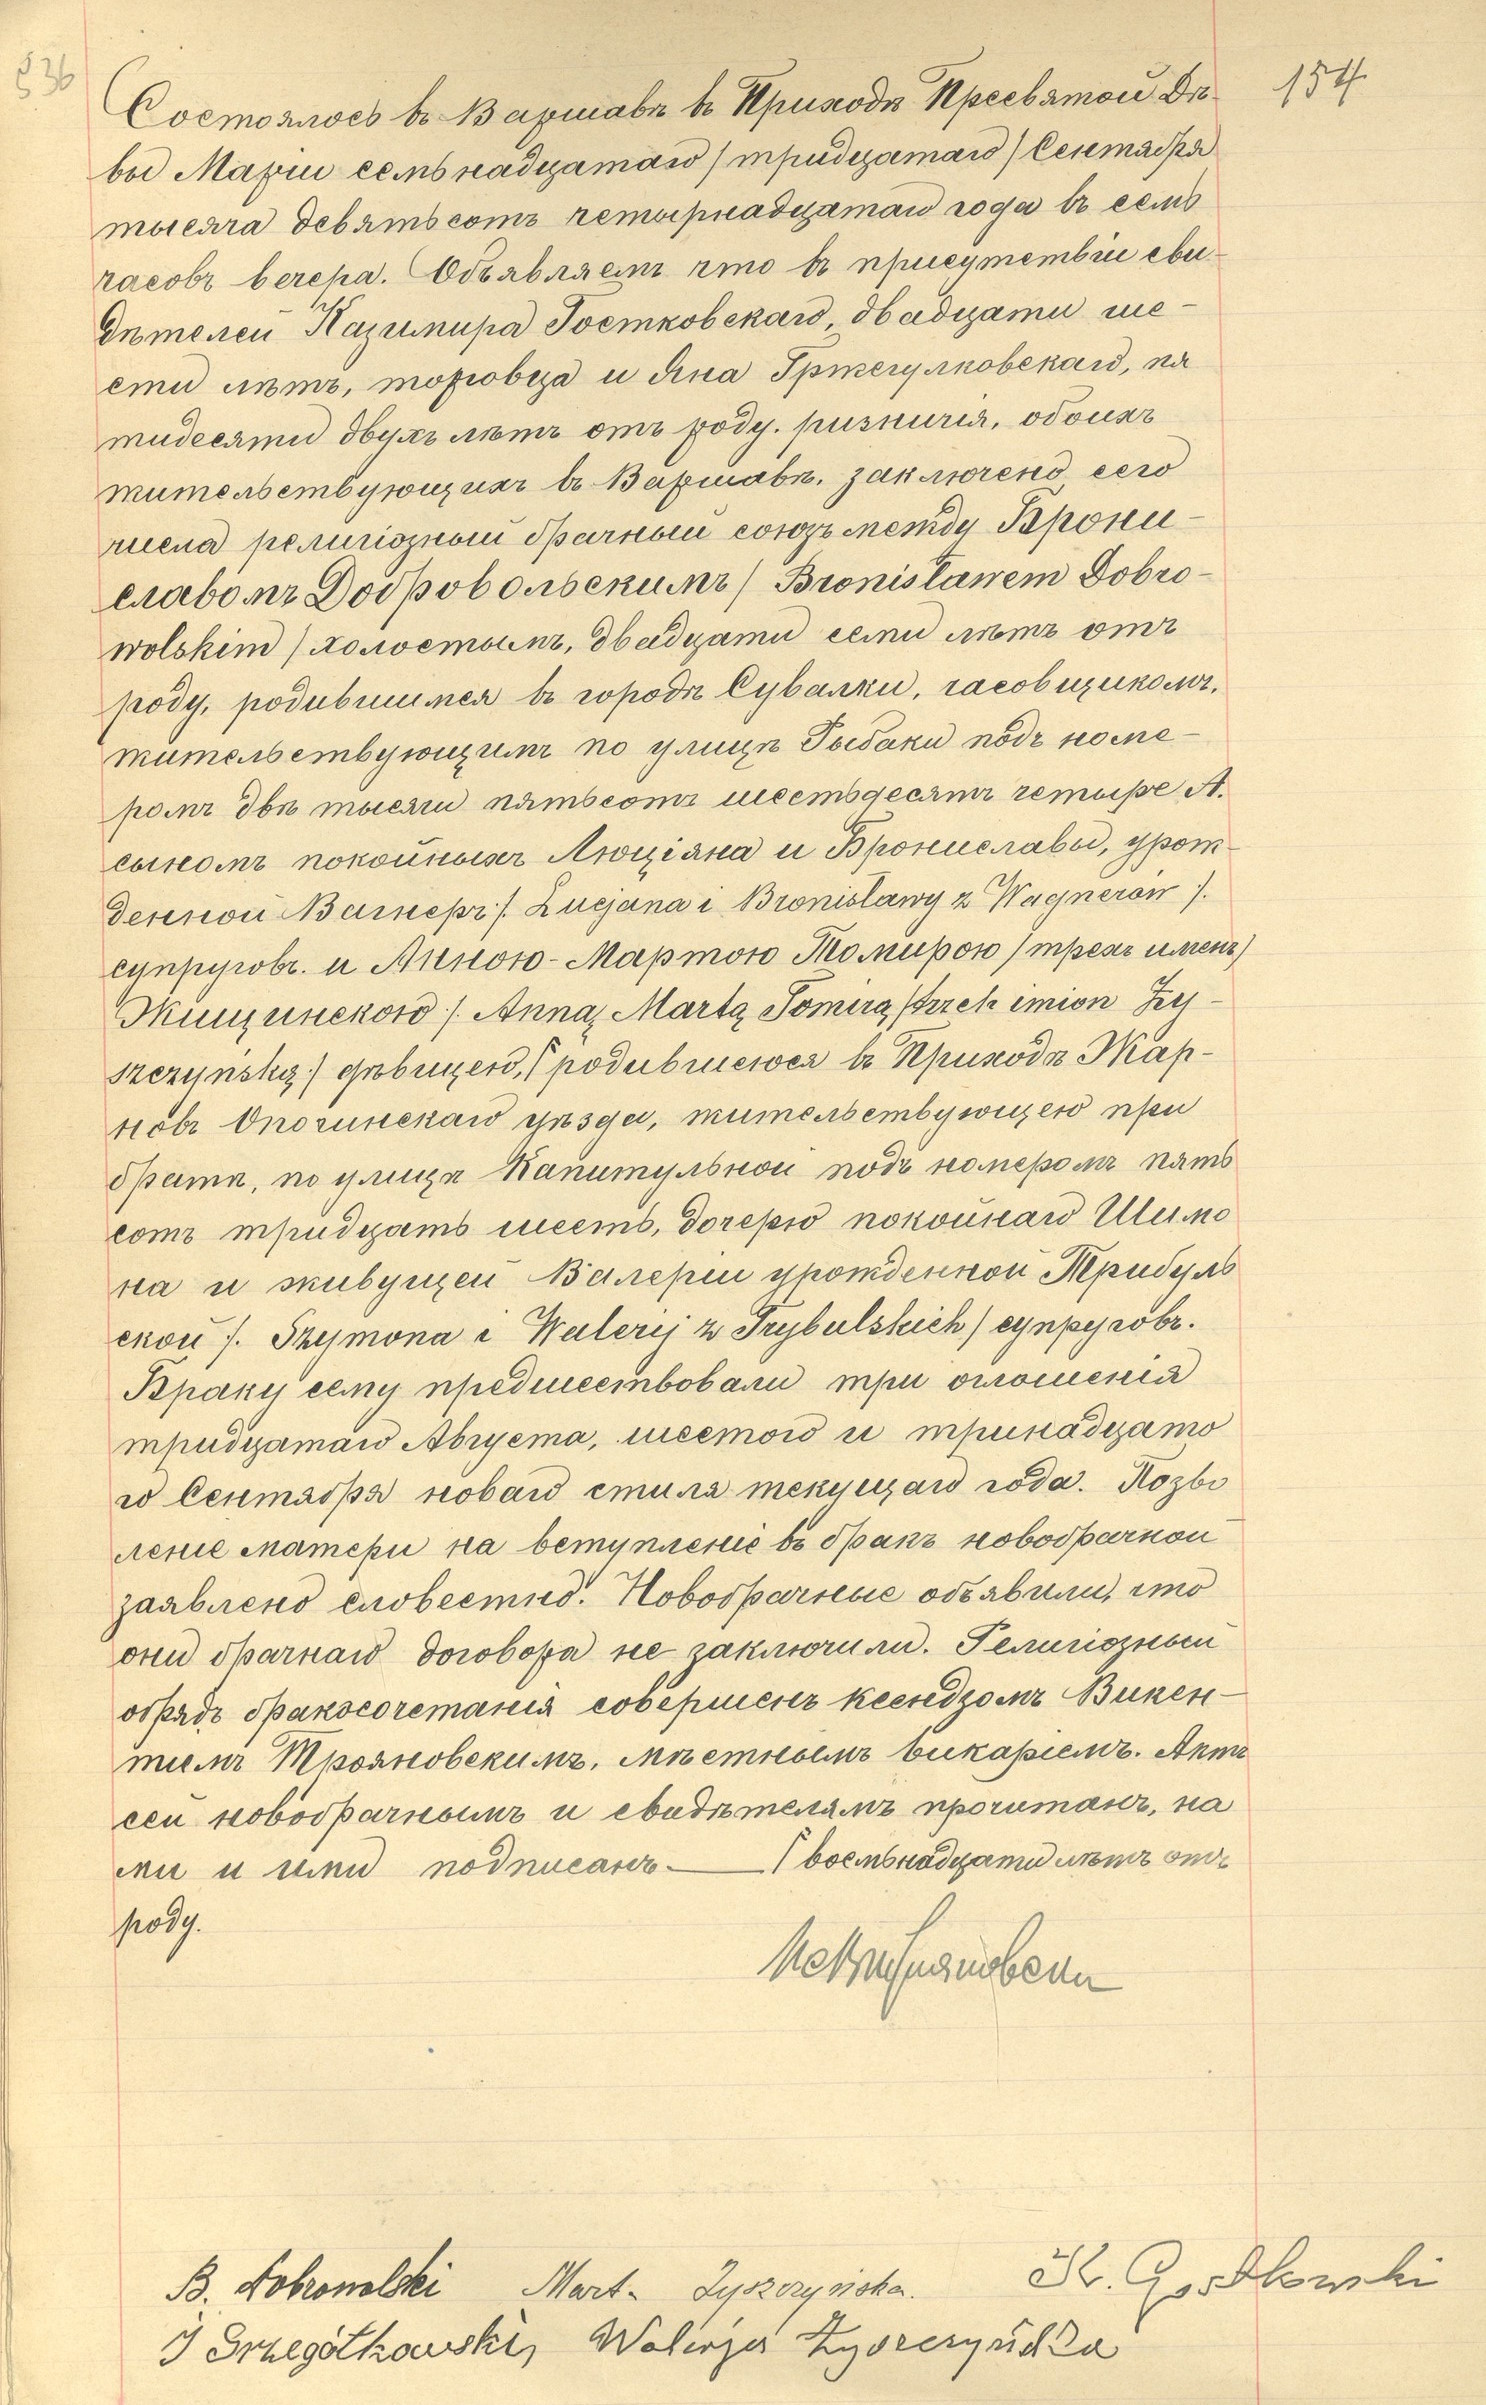 536
154
Состоялось въ Варшавѣ въ Приходѣ Пресвятой Дѣ-
вы Маріи семьнадцатаго / тридцатаго / Сентября
тысяча девятьсотъ четырнадцатаго года въ семь
часовъ вечера. Объявляемъ что въ присутствіи сви-
дѣтелей Казимира Гостковскаго, двадцати ше-
сти лѣтъ, торговца и Яна Гржегулковскаго, пя
тидесяти двухъ лѣтъ отъ роду, ризничія, обоихъ
жительствующихъ въ Варшавѣ, заключенъ сего
числа религіозный брачный союзъ между Брони-
славомъ Добровольскимъ / Bronisławem Dobro-
wolskim / холостымъ, двадцати семи лѣтъ отъ
роду, родившимся въ городѣ Сувалки, часовщикомъ,
жительствующимъ по улицѣ Рыбаки подъ номе-
ромъ двѣ тысячи пятьсотъ шестьдесятъ четыре А.
сыномъ покойныхъ Люціяна и Брониславы, урож-
денной Вагнеръ /. Lucjana i Bronisławy z Wagnerów /.
супруговъ. и Анною-Мартою Томирою / трехъ именъ /
Жищинскою /. Anną Martą Tomirą / trzech imion Ży-
szczyńską / дѣвицею, ∫ родившеюся въ Приходѣ Жар-
новъ Опочинскаго уѣзда, жительствующею при
братѣ, по улицѣ Капитульной подъ номеромъ пять
сотъ тридцать шесть, дочерью покойнаго Шимо
на и живущей Валеріи урожденной Трибуль
ской /. Szymona i Walerij z Trybulskich / супруговъ.
Браку сему предшествовали три оглошенія
тридцатаго Августа, шестого и тринадцато
го Сентября новаго стиля текущаго года. Позво
леніе матери на вступленіе въ бракъ новобрачной
заявлено словестно. Новобрачные объявили, что
они брачнаго договора не заключили. Религіозный
обрядъ бракосочетанія совершенъ ксендзомъ Викен-
тиемъ Трояновскимъ, мѣстнымъ викаріемъ. Актъ
сей новобрачнымъ и свидѣтелямъ прочитанъ, на
ми и ими подписанъ. — ∫ восемьнадцати лѣтъ отъ
роду.
B. Dobrowolski Mart. Żyszczyńska. K. Gostkowski
J Grzegółkowski, Walerja Żyszczyńska